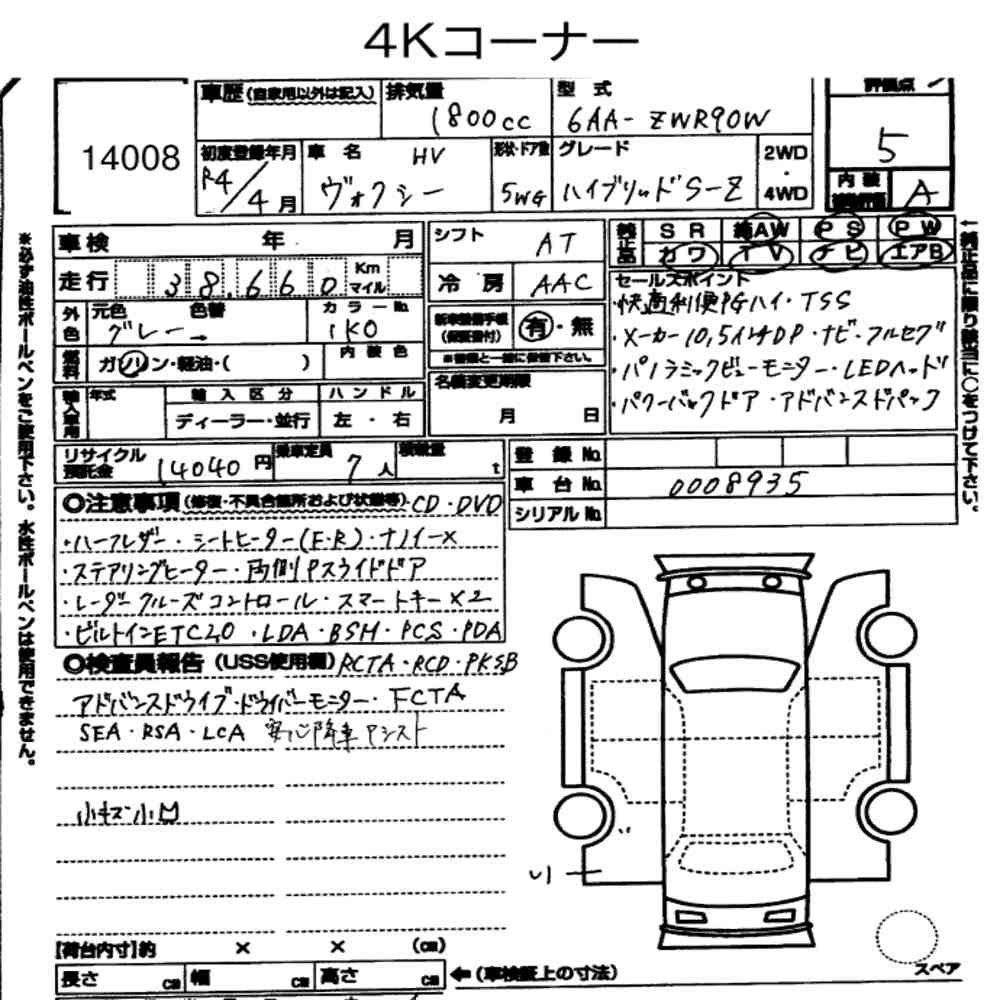 4Kコーナー
14008
車歴(自家用以外は記入)
排気量 1800cc
型式 6AA-ZWR90W
評価点 5
初度登録年月 R4/4月
車名 HV ヴォクシー
形状・ドア数 5WG
グレード ハイブリッドS-Z
2WD・4WD
内装 A
車検 年 月
走行 38,660 Km マイル
シフト AT
冷房 AAC
純正品 SR 純AW PS PW
カワ TV ナビ エアB
外色 元色 グレー 色替 →
カラーNo. 1K0
燃料 ガソリン・軽油・( )
内装色
新車整備手帳(保証書付) 有・無
※書類と一緒に保管下さい。
名義変更期限
月 日
輸入車用 年式 輸入区分 ディーラー・並行
ハンドル 左・右
セールスポイント
・快適利便PGハイ・TSS
・メーカー10,5インチDP・ナビ・フルセグ
・パノラミックビューモニター・LEDヘッド
・パワーバックドア・アドバンスドパック
リサイクル預託金 14040円
乗車定員 7人
積載量 t
登録No.
車台No. 0008935
シリアルNo.
◎注意事項(修復・不具合箇所および状態等) CD・DVD
・ハーフレザー・シートヒーター(F・R)・ナノイーX
・ステアリングヒーター・両側Pスライドドア
・レーダークルーズコントロール・スマートキー×2
・ビルトインETC2.0・LDA・BSM・PCS・PDA
◎検査員報告(USS使用欄) RCTA・RCD・PKSB
アドバンスドドライブ・ドライバーモニター・FCTA
SEA・RSA・LCA 安心降車アシスト
小キズ小凹
【荷台内寸】約 × × (㎝)
長さ ㎝ 幅 ㎝ 高さ ㎝
←(車検証上の寸法)
スペア
※必ず油性ボールペンをご使用下さい。水性ボールペンは使用できません。
←純正品に限り該当に○をつけて下さい。